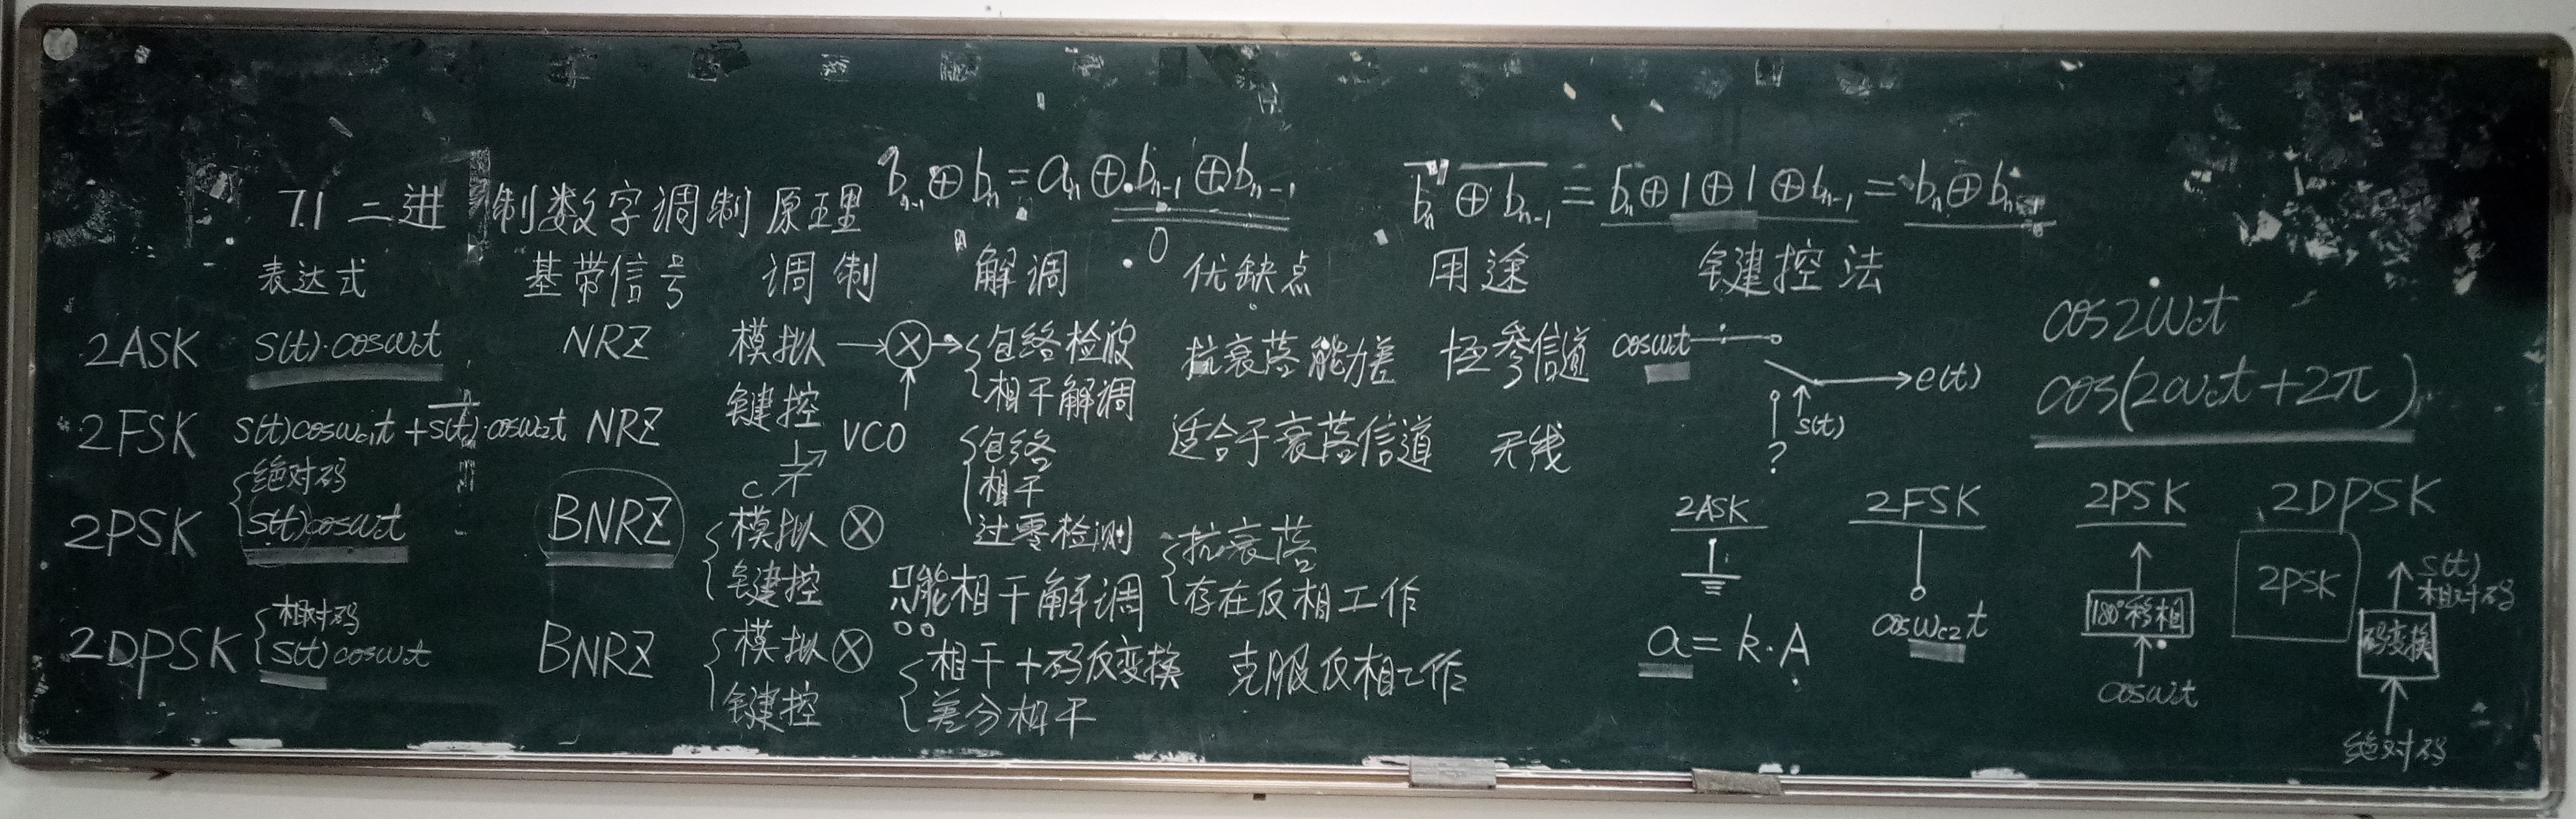 7.1 二进制数字调制原理
b_{n-1}⊕b_n=a_n⊕b_{n-1}⊕b_{n-1}
0
\overline{b_n}⊕\overline{b_{n-1}}=b_n⊕1⊕1⊕b_{n-1}=b_n⊕b_{n-1}
表达式 基带信号 调制 解调 优缺点 用途 键控法
2ASK S(t)·cosω_ct NRZ 模拟 键控 包络检波 相干解调 抗衰落能力差 恒参信道
2FSK S(t)cosω_{c1}t+\overline{S(t)}·cosω_{c2}t NRZ VCO 包络 相干 过零检测 适合于衰落信道 无线
2PSK 绝对码 S(t)cosω_ct BNRZ 模拟⊗ 键控 只能相干解调 抗衰落 存在反相工作
2DPSK 相对码 S(t)cosω_ct BNRZ 模拟⊗ 键控 相干+码反变换 差分相干 克服反相工作
C
cosω_ct
e(t)
S(t)
?
cos2ω_ct
cos(2ω_ct+2π)
2ASK 2FSK 2PSK 2DPSK
cosω_{c2}t
a=k·A
180°移相
cosω_ct
2PSK
S(t)
相对码
码变换
绝对码